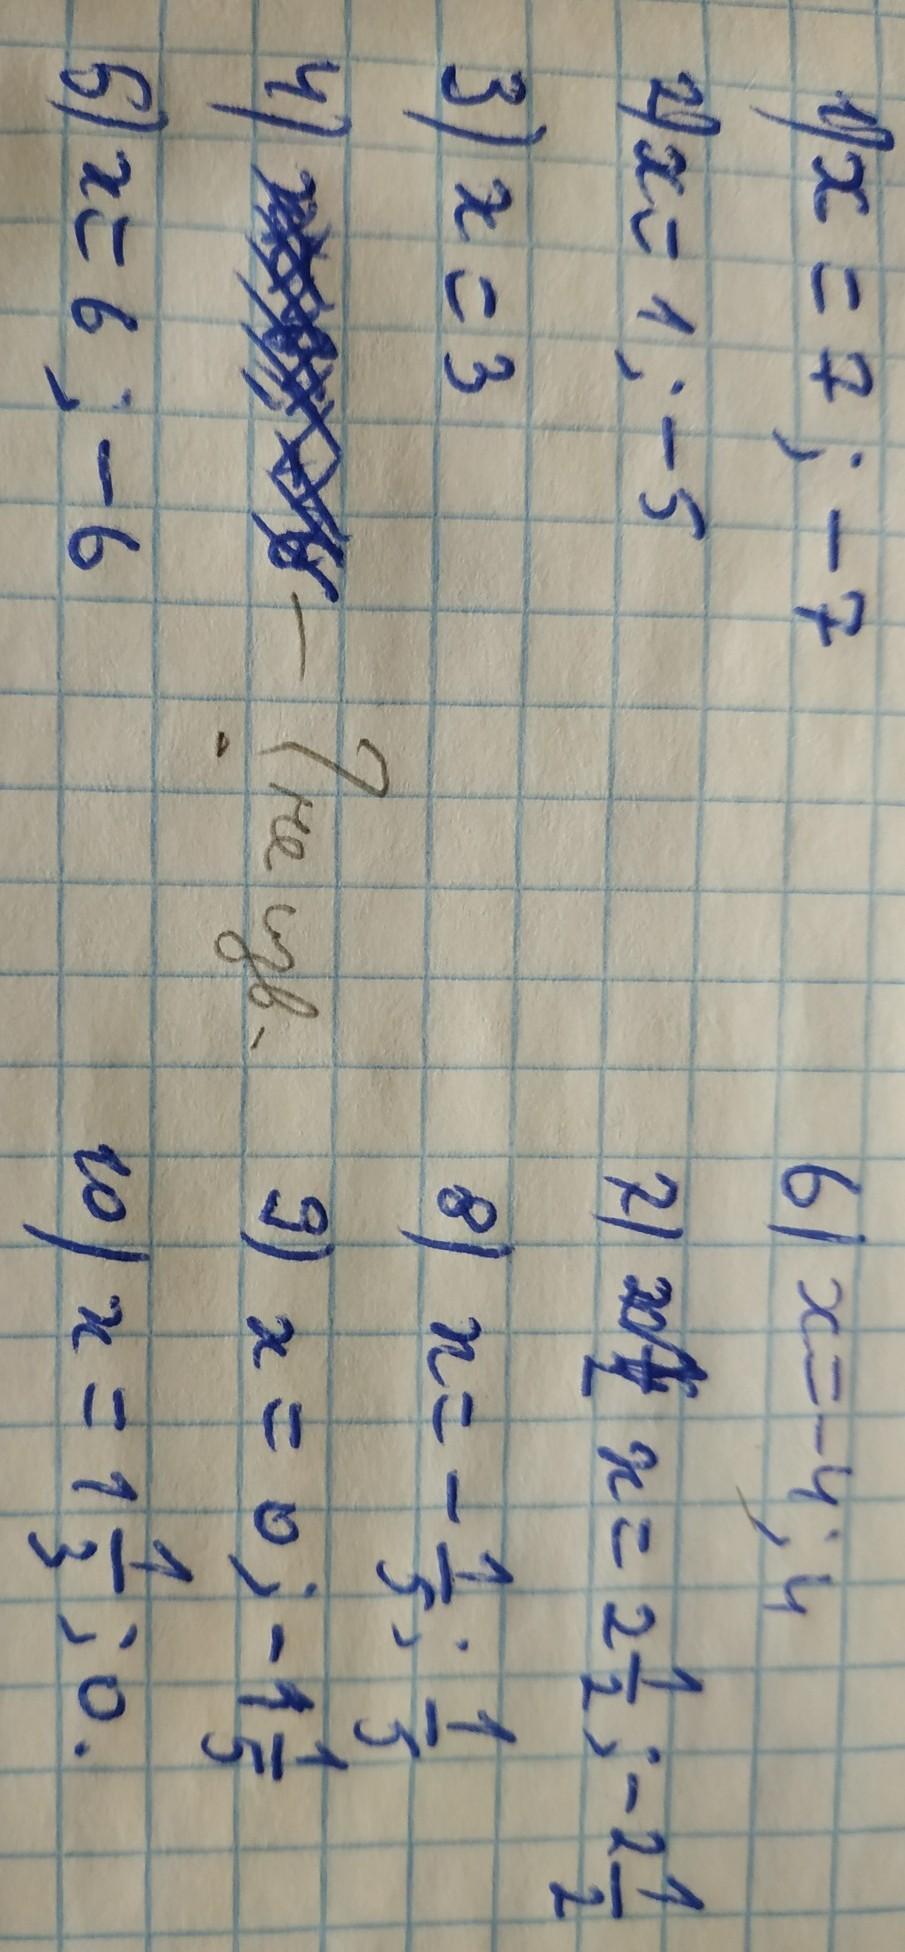 1) x = 7 ; -7
2) x = 1 ; -5
3) x = 3
4) — ? не изв.
5) x = 6 ; -6
6) x = -4 ; 4
7) x = 2 1/2 ; -2 1/2
8) x = - 1/5 ; 1/5
9) x = 0 ; -1 1/5
10) x = 1 1/3 ; 0.